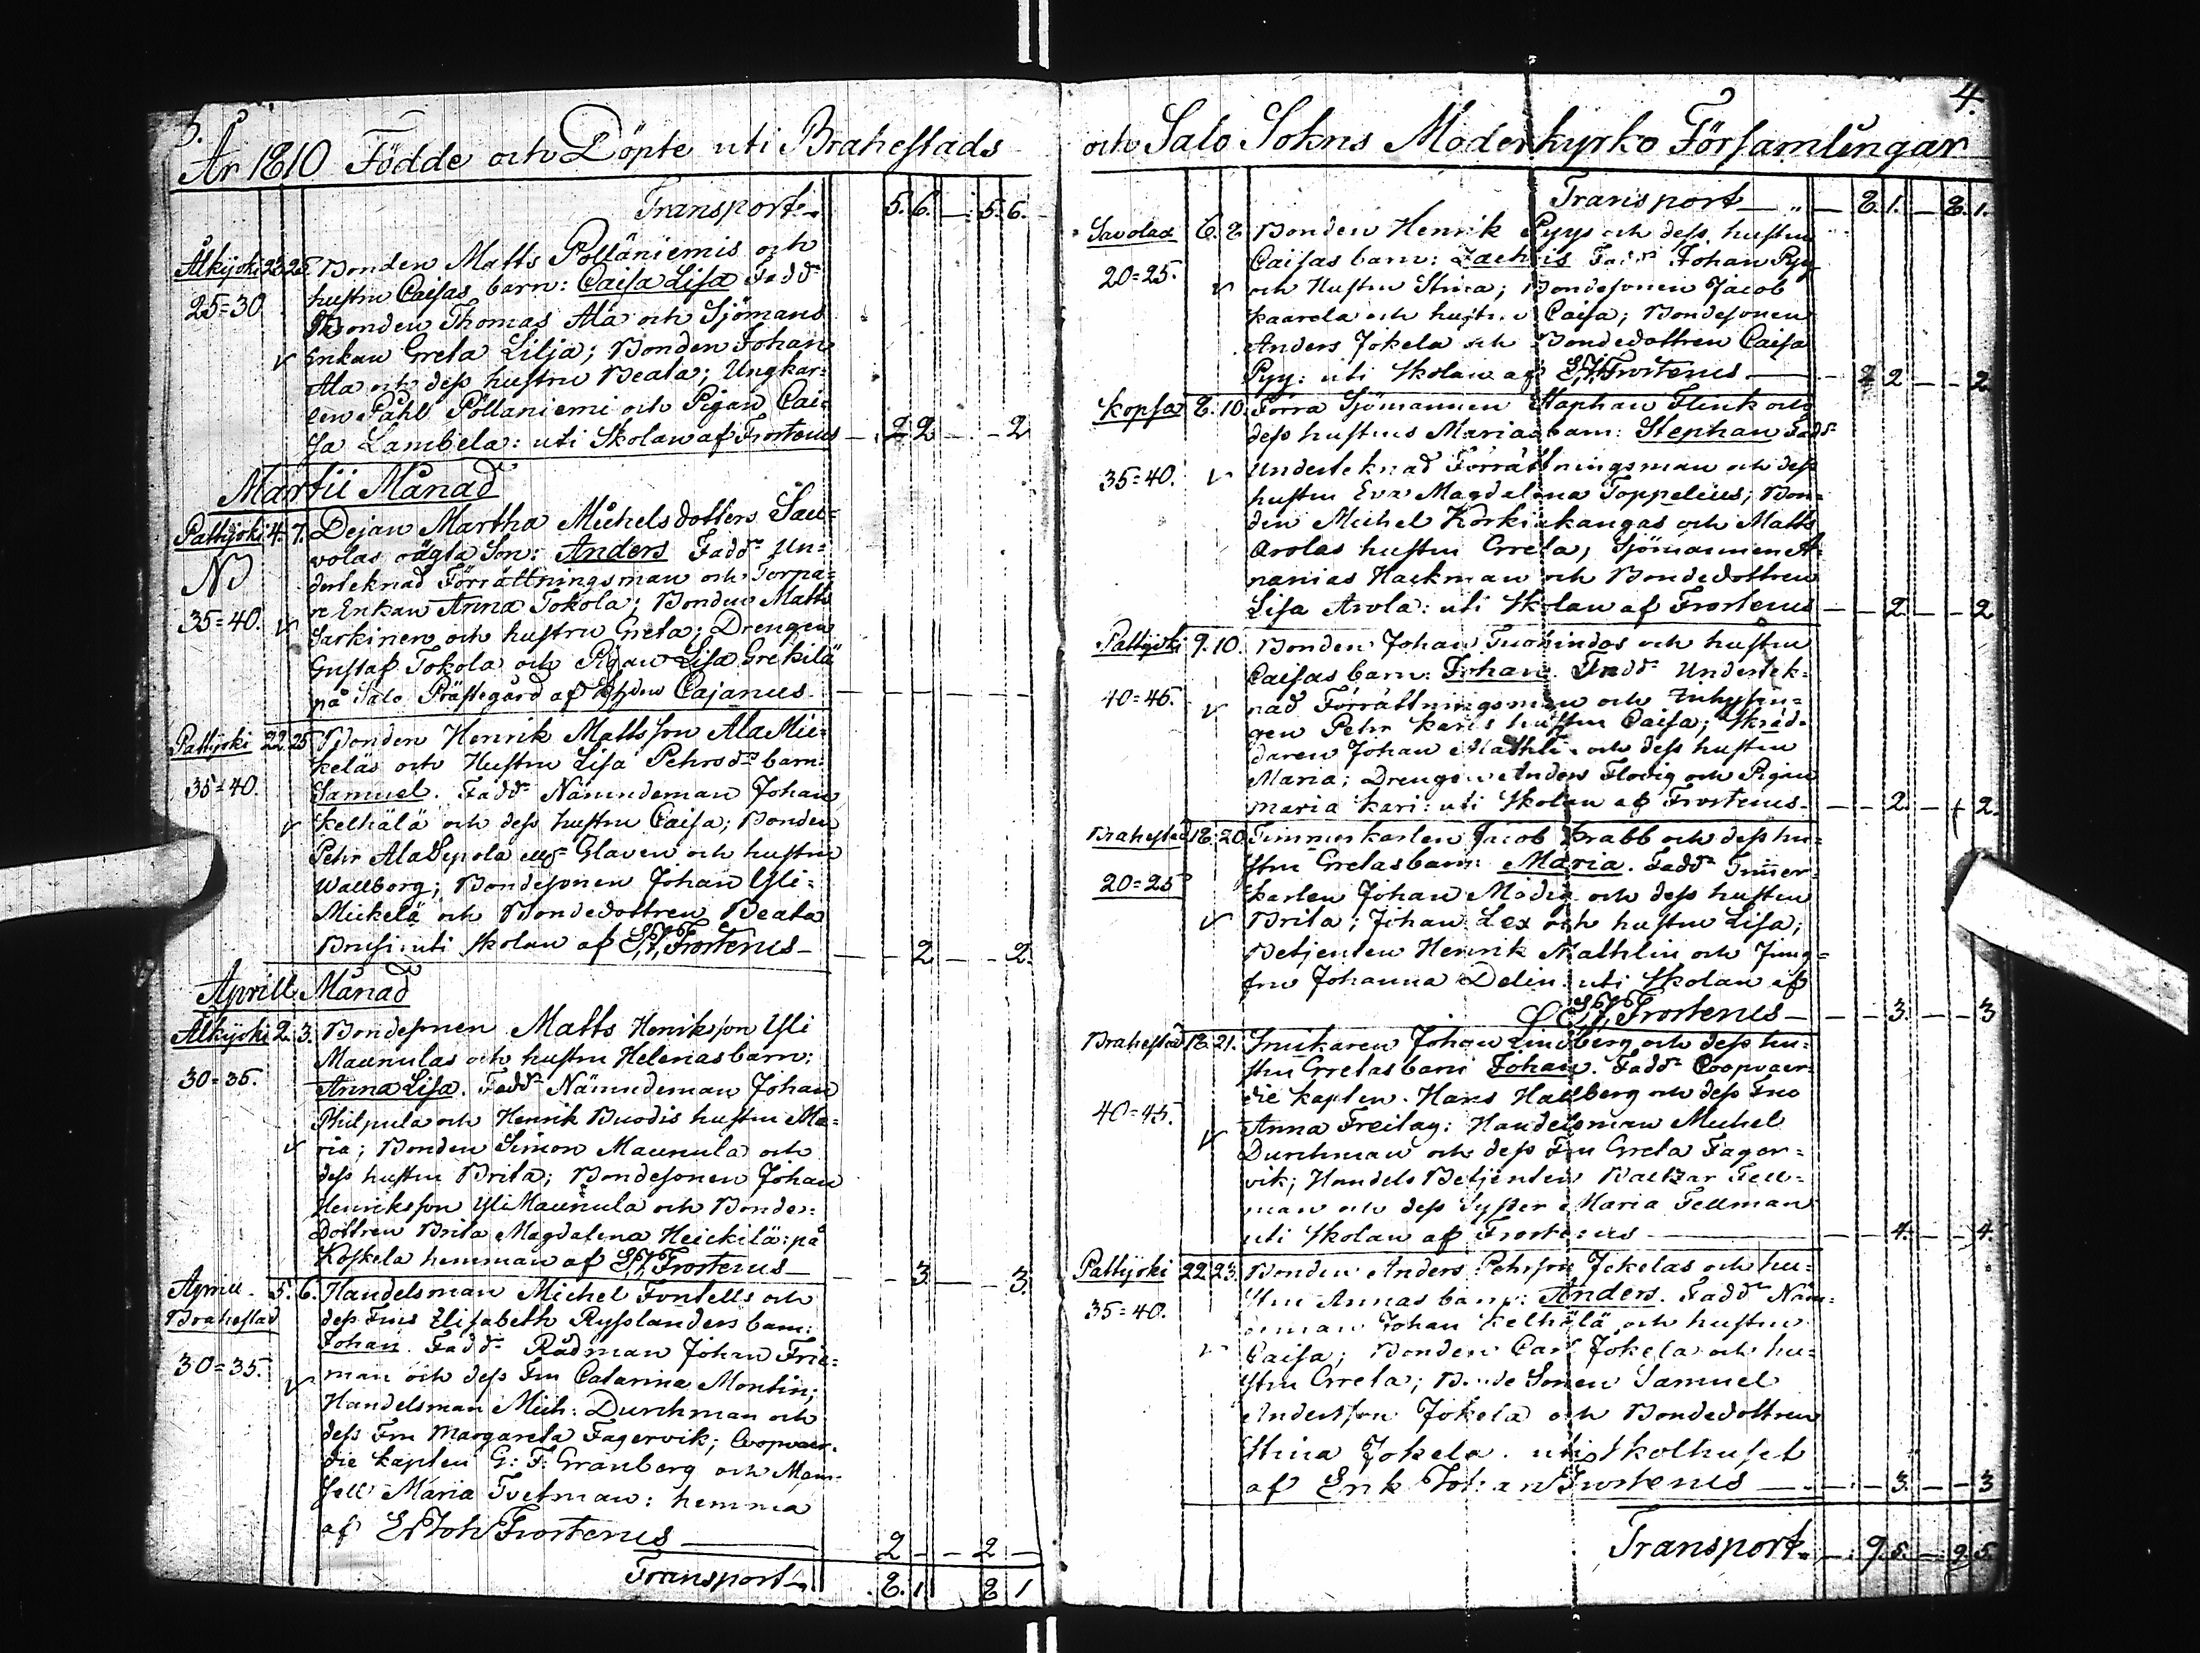 3.
År 1810 Födde och Döpte uti Brahestads
Transport 5. 6. — 5. 6.
Alkijoki 23. 25. Bonden Matts Pölläniemis och
25=30 hustru Caisas barn: Caisa Lisa Fadd.
Bonden Thomas Ala och Sjömans
Enkan Greta Lilja; Bonden Johan
Ala och dess hustru Beata; Ungkar-
len Påhl Pöllaniemi och Pigan Cai-
sa Lambela: uti Skolan af Frosterus — 2 2 — 2
Martii Månad
Pattijoki 4. 7. Dejan Martha Michelsdotters Sau=
wolas oägta Son: Anders Fadd. Un=
derteknad Förrättningsman och Torpa=
re Enkan Anna Tokola; Bonden Matts
35=40. Sarkinen och hustru Greta; Drengen
Gustaf Tokola och Pigan Lisa Grekilä
på Salo Prästegård af Cajanus
Pattijoki 22. 25 Bonden Henrik Mattsson Ala Mic=
kelas och Hustru Lisa Pehrsdr barn:
35=40. Samuel. Fadd. Nämndeman Johan
Kelhälä och dess hustru Caisa; Bonden
Pehr Ala Glaven och hustru
Wallborg; Bondesonen Johan Yli=
Mickelä och Bondedottren Beata
Brusi: uti Skolan af E. J. Frosterus — 2 — 2.
Aprill Månad
Alkijoki 2. 3. Bondesonen Matts Henriksson Yli
Maunulas och hustru Helenas barn:
30=35. Anna Lisa. Fadd. Nämndeman Johan
Philpula och Henrik Buodis hustru Ma=
ria; Bonden Simon Maunula och
dess hustru Brita; Bondesonen Johan
Henriksson Yli Maunula och Bonde=
dottren Brita Magdalena Heickilä: på
Koskela hemman af E. J. Frosterus — 3 — 3.
Aprill 5. 6. Handelsman Michel Fontells och
Brahestad dess Frus Elisabeth Rysslanders barn:
Johan. Fadd. Rådman Johan Frie=
30=35. man och dess Fru Catarina Montin;
Handelsman Mich: Durchman och
dess Fru Margareta Fagervik; Coopvaer-
die kapten G: F: Granberg och Mam-
sell Maria Tvetman: hemma
af Er Joh Frosterus — 2 — 2 —
Transport 8. 1 8 1
4.
och Salo Sokns Moderkyrko Församlingar
Transport — 8. 1. — 8. 1.
Savolax 6. 8. Bonden Henrik Pyys och dess hustru
20=25. Caisas barn: Zachris Fadd. Johan Pyy
och Hustru Stina; Bondesonen Jacob
Kaarela och hustru Caisa; Bondesonen
Anders Jokela och Bondedottren Caisa
Pyy: uti Skolan af E. J. Frosterus — 2 2 — 2.
Kopsa 8. 10. Förra Sjömannen Staphan Flink och
dess hustrus Marias barn: Stephan Fadd.
35=40. Underteknad Förrättningsman och dess
hustru Eva Magdalena Toppelius; Bon=
den Michel Körkinkangas och Matts
Arolas hustru Greta; Sjömannen A=
nanias Hackman och Bondedottren
Lisa Arola: uti Skolan af Frosterus — 2 — 2
Pattijoki 9. 10. Bonden Johan Tuomindos och hustru
Caisas barn: Johan. Fadd. Undertek=
40=45. nad Förrättningsman och Inhysin=
gen Pehr Karis hustru Caisa; Skräd=
daren Johan Mathlin och dess hustru
Maria; Drengen Anders Flodig och Pigan
Maria Kari: uti Skolan af Frosterus — 2. — 2.
Brahestad 18. 20. Timmerkarlen Jacob Krabb och dess hu=
stru Gretas barn: Maria. Fadd. Timer=
20=25 karlen Johan Modig och dess hustru
Brita; Johan Lex och hustru Lisa;
Betjenten Henrik Mathlin och Jung=
fru Johanna Delin: uti Skolan af
E. J. Frosterus — 3. — 3
Brahestad 18. 21. Snickaren Johan Lindberg och dess hu=
stru Gretas barn Johan. Fadd. Coopvaer=
die kapten. Hans Hallberg och dess Fru
40=45. Anna Freitag: Handelsman Michel
Durchman och dess Fru Greta Fager=
vik; Handels Betjenten Baltzar Fell=
man och dess Syster Maria Fellman
uti Skolan af Frosterus — 4. — 4.
Pattijoki 22. 23. Bonden Anders Pehrsson Jokelas och hu=
stru Annas barn: Anders. Fadd. Näm=
35=40. deman Johan Kelhälä och hustru
Caisa; Bonden Carl Jokela och hu=
stru Greta; Bonde Sonen Samuel
Andersson Jokela och Bondedottren
Stina Jokela. uti Skolhuset
af Erik Johan Frosterus — 3. — 3
Transport — 9. 5. — 9. 5.